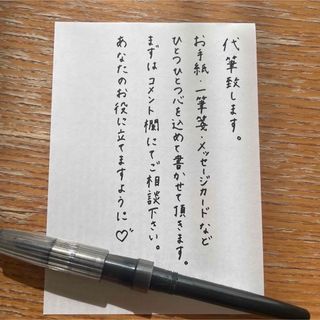 代筆致します。
お手紙・一筆箋・メッセージカードなど
ひとつひとつ心を込めて書かせて頂きます。
まずはコメント欄にてご相談下さい。
あなたのお役に立てますように♡